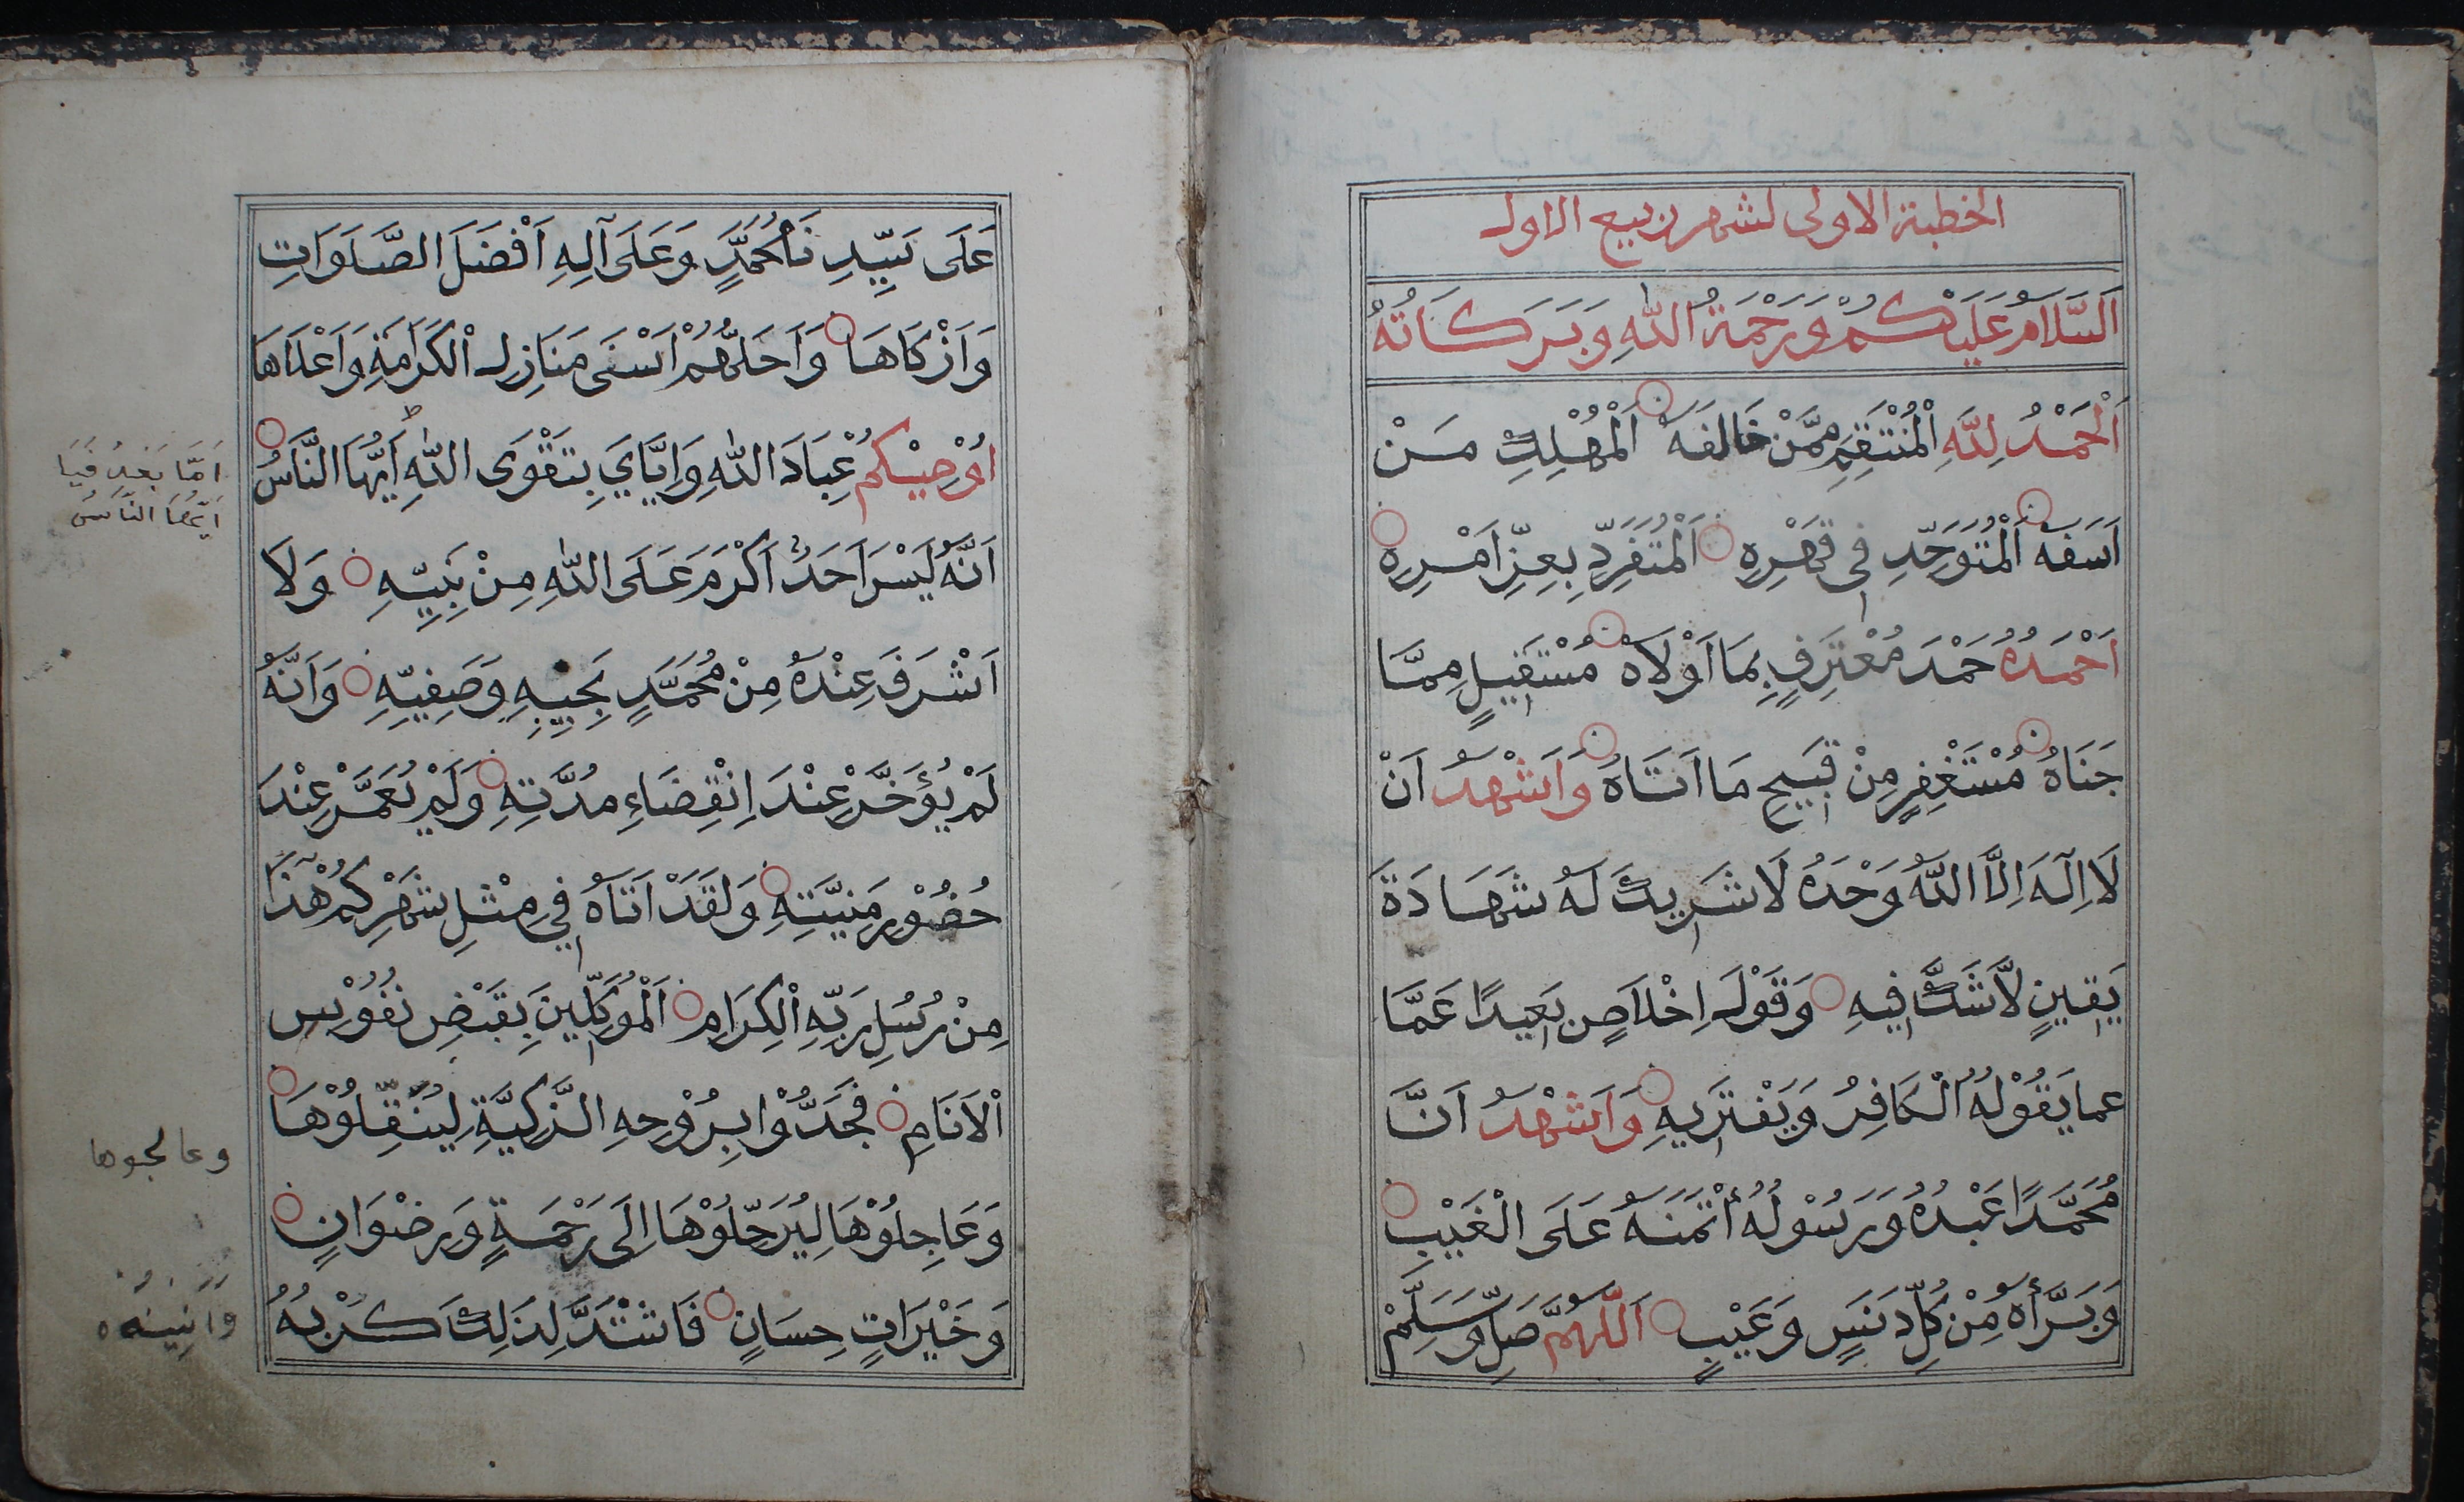 الخطبة الاولى لشهر ربيع الاول
اَلسَّلَامُ عَلَيْكُمْ وَرَحْمَةُ اللّٰهِ وَبَرَكَاتُهُ
اَلْحَمْدُ لِلّٰهِ الْمُنْتَقِمِ مِمَّنْ خَالَفَهُ اَلْمُهْلِكِ مَنْ
اَسَفَهُ اَلْمُتَوَحِّدِ فِي قَهْرِهِ اَلْمُتَفَرِّدِ بِعِزِّ اَمْرِهِ
اَحْمَدُهُ حَمْدَ مُعْتَرِفٍ بِمَا اَوْلَاهُ مُسْتَقِيلٍ مِمَّا
جَنَاهُ مُسْتَغْفِرٍ مِنْ قَبِيحِ مَا اَتَاهُ وَاَشْهَدُ اَنْ
لَا اِلٓهَ اِلَّا اللّٰهُ وَحْدَهُ لَا شَرِيكَ لَهُ شَهَادَةَ
يَقِينٍ لَّا شَكَّ فِيهِ وَقَوْلَ اِخْلَاصٍ بَعِيدًا عَمَّا
عما يَقُوْلُهُ الْكَافِرُ وَيَفْتَرِيهِ وَاَشْهَدُ اَنَّ
مُحَمَّدًا عَبْدُهُ وَرَسُوْلُهُ اُئْتَمَنَهُ عَلَى الْغَيْبِ
وَبَرَّأَهُ مِنْ كُلِّ دَنَسٍ وَعَيْبٍ اَللّٰهُمَّ صَلِّ وَسَلِّمْ
عَلَى سَيِّدِنَا مُحَمَّدٍ وَعَلَى آلِهِ اَفْضَلَ الصَّلَوَاتِ
وَاَزْكَاهَا وَاَحَلَّهُمْ اَسْنَى مَنَازِلِ الْكَرَامَةِ وَاَعْلَاهَا
اُوْصِيْكُمْ عِبَادَ اللّٰهِ وَاِيَّايَ بِتَقْوَى اللّٰهِ اَيُّهَا النَّاسُ
اَمَّا بَعْدُ فَيَا
اَيُّهَا النَّاسُ
اَنَّهُ لَيْسَ اَحَدٌ اَكْرَمَ عَلَى اللّٰهِ مِنْ نَبِيِّهِ وَلَا
اَشْرَفَ عِنْدَهُ مِنْ مُحَمَّدٍ نَجِيبِهِ وَصَفِيِّهِ وَاَنَّهُ
لَمْ يُؤَخَّرْ عِنْدَ اِنْقِضَاءِ مُدَّتِهِ وَلَمْ يُعَمَّرْ عِنْدَ
حُضُوْرِ مَنِيَّتِهِ وَلَقَدْ اَتَاهُ فِي مِثْلِ شَهْرِكُمْ هٰذَا
مِنْ رُسُلِ رَبِّهِ الْكِرَامِ اَلْمُوَكَّلِينَ بِقَبْضِ نُفُوْسِ
الْاَنَامِ فَجَدُّوْا بِرُوْحِهِ الزَّكِيَّةِ لِيُنَقِّلُوْهَا
وعالجوها
وَعَاجِلُوْهَا لِيُرَحِّلُوْهَا اِلَى رَحْمَةٍ وَرِضْوَانٍ
وَخَيْرَاتٍ حِسَانٍ فَاشْتَدَّ لِذَلِكَ كَرْبُهُ
وَاَنِينُهُ